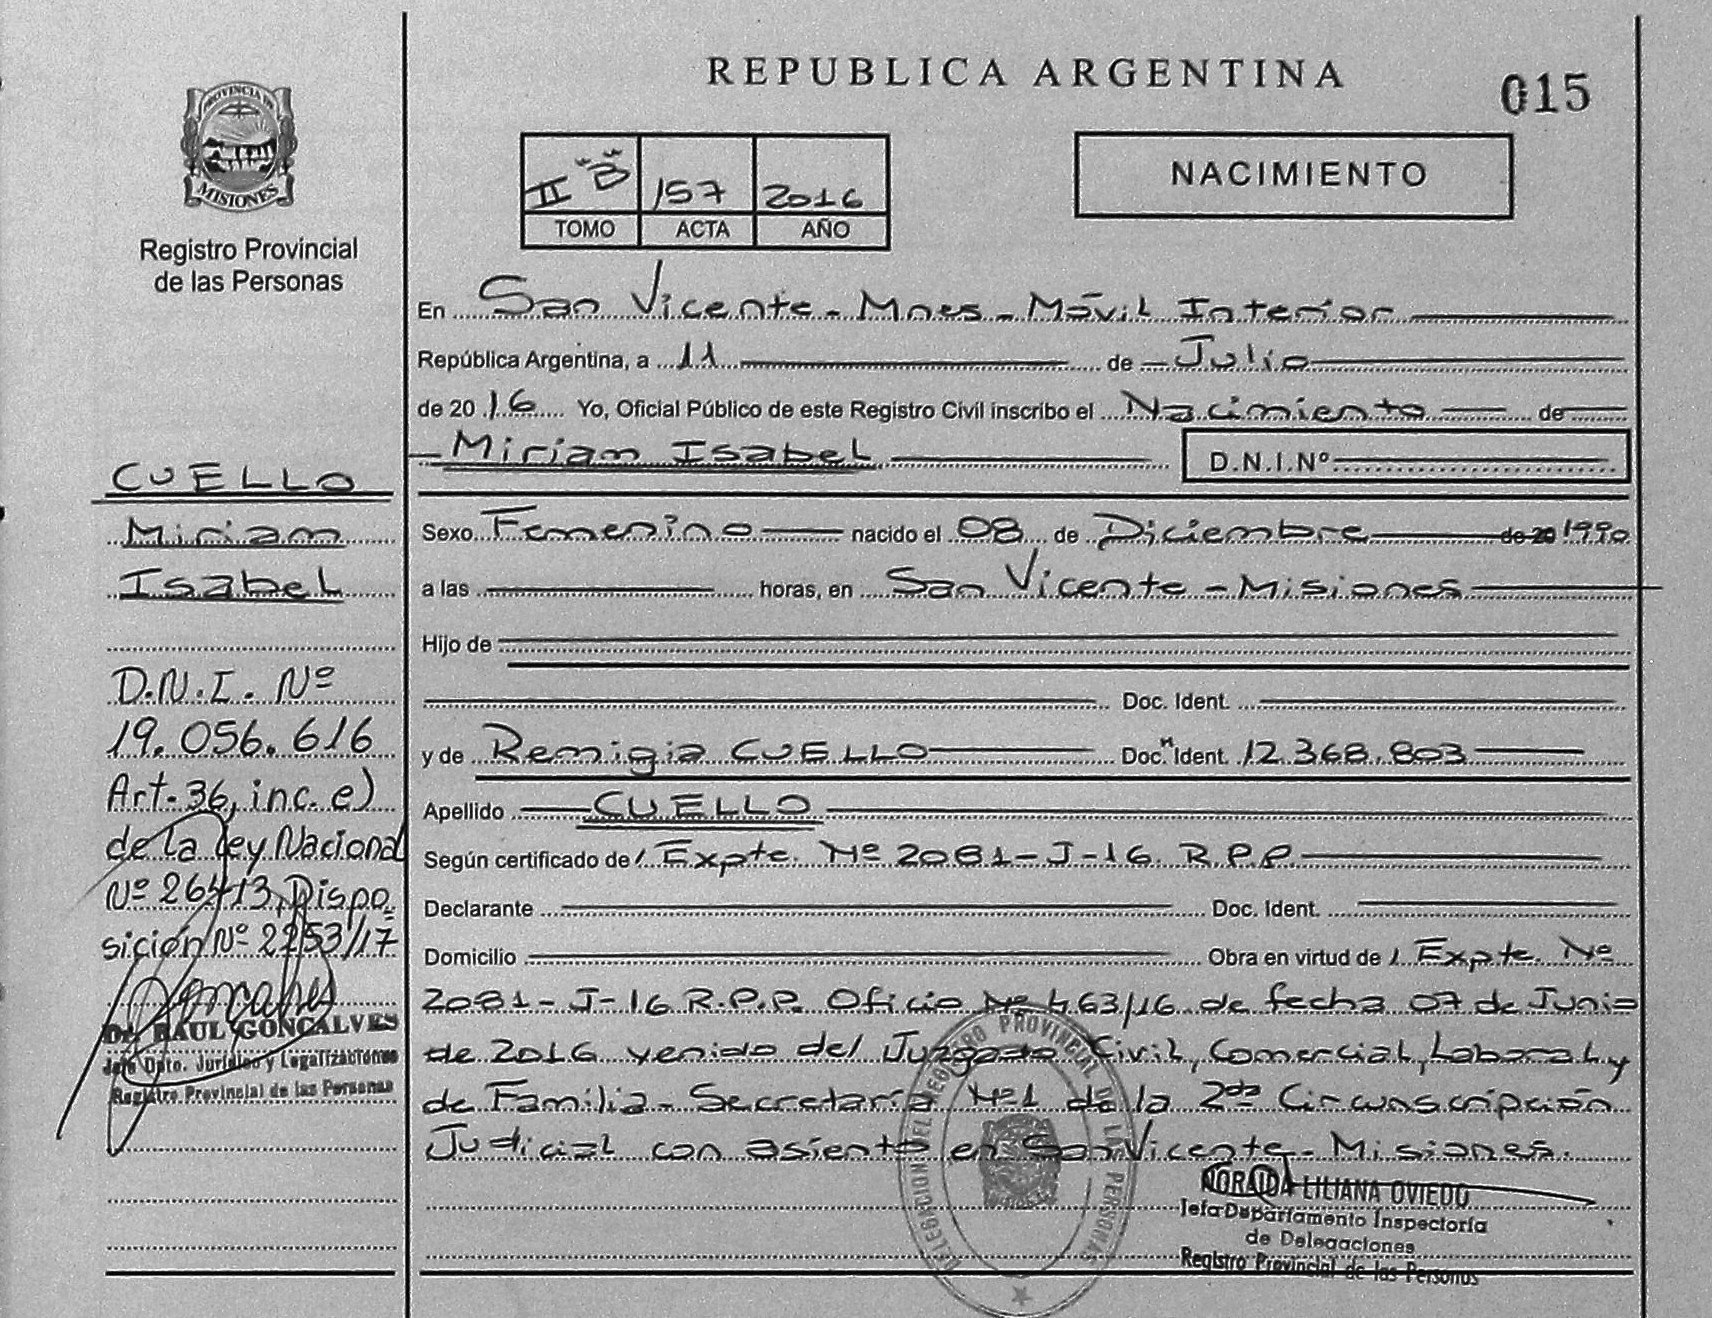 PROVINCIA DE
MISIONES
Registro Provincial
de las Personas
CUELLO
Miriam
Isabel
D.N.I. Nº
19.056.616
Art. 36, inc. e)
de la Ley Nacional
Nº 26413, Dispo
sición Nº 2253/17
Dr. RAUL GONCALVES
Jefe Dpto. Jurídico y Legalizaciones
Registro Provincial de las Personas
REPUBLICA ARGENTINA
015
II "B" 157 2016
TOMO ACTA AÑO
NACIMIENTO
En San Vicente - Mnes - Móvil Interior
República Argentina, a 11 de Julio
de 2016 Yo, Oficial Público de este Registro Civil inscribo el Nacimiento de
Miriam Isabel D.N.I.Nº
Sexo Femenino nacido el 08 de Diciembre de 20 1990
a las horas, en San Vicente - Misiones
Hijo de
Doc. Ident.
y de Remigia CUELLO Doc. Ident. 12.368.803
Apellido CUELLO
Según certificado de Expte. Nº 2081-J-16 R.P.P.
Declarante Doc. Ident.
Domicilio Obra en virtud de Expte. Nº
2081-J-16 R.P.P. Oficio Nº 463/16 de fecha 07 de Junio
de 2016 venido del Juzgado Civil, Comercial, Laboral y
de Familia - Secretaría Nº1 de la 2da Circunscripción
Judicial con asiento en San Vicente - Misiones.
DELEGACION DEL REGISTRO PROVINCIAL DE LAS PERSONAS
LILIANA OVIEDO
Jefa Departamento Inspectoría
de Delegaciones
Registro Provincial de las Personas